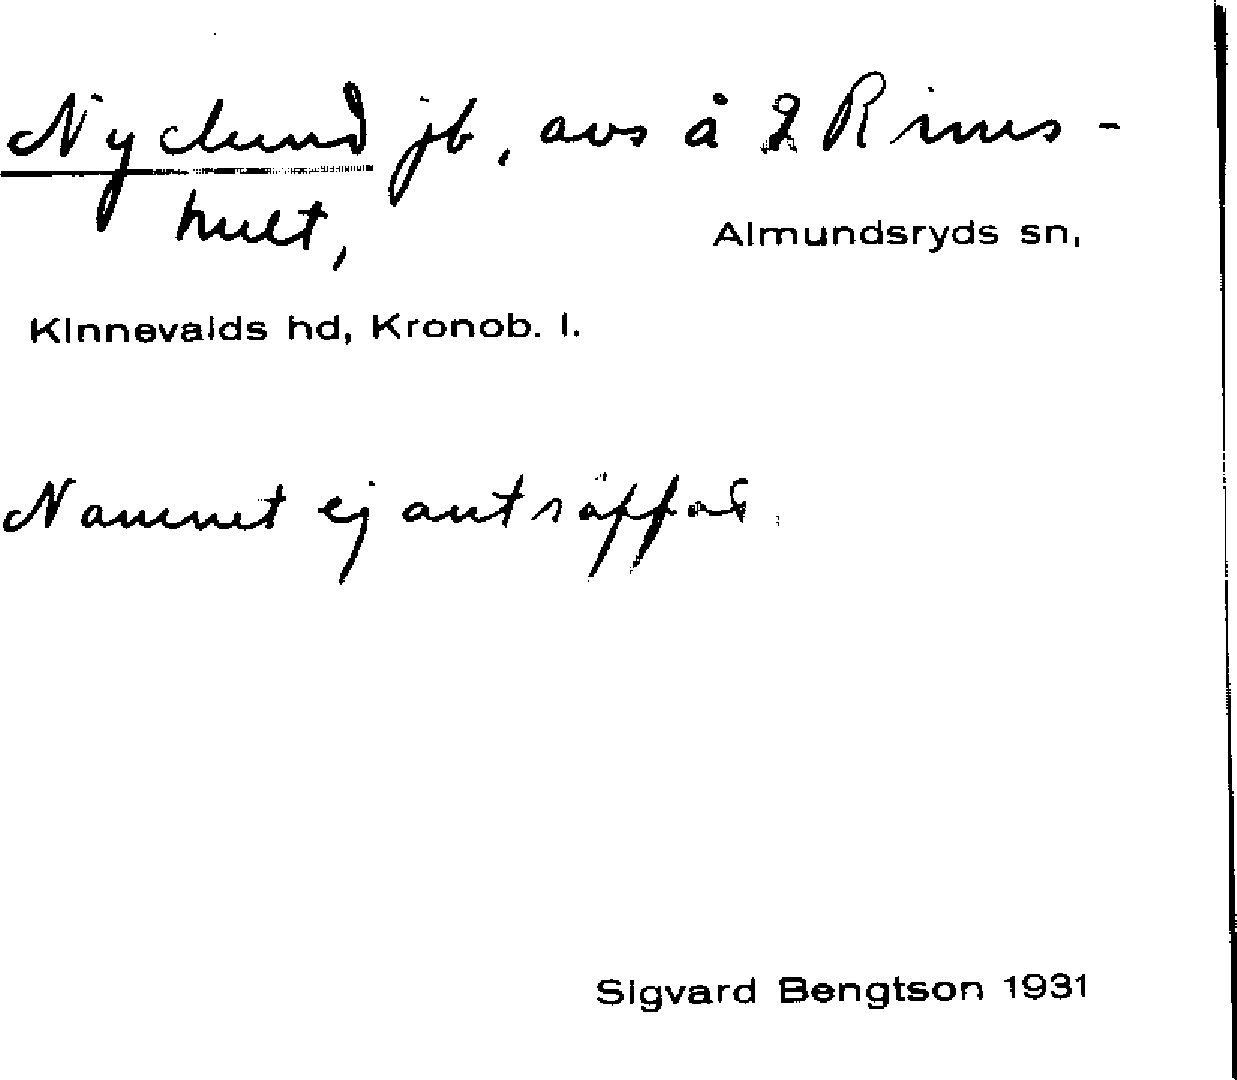 Nylund jb, avs å 2 Rims-
hult, Almundsryds sn,
Kinnevalds hd, Kronob. l.
Namnet ej anträffat.
Sigvard Bengtson 1931